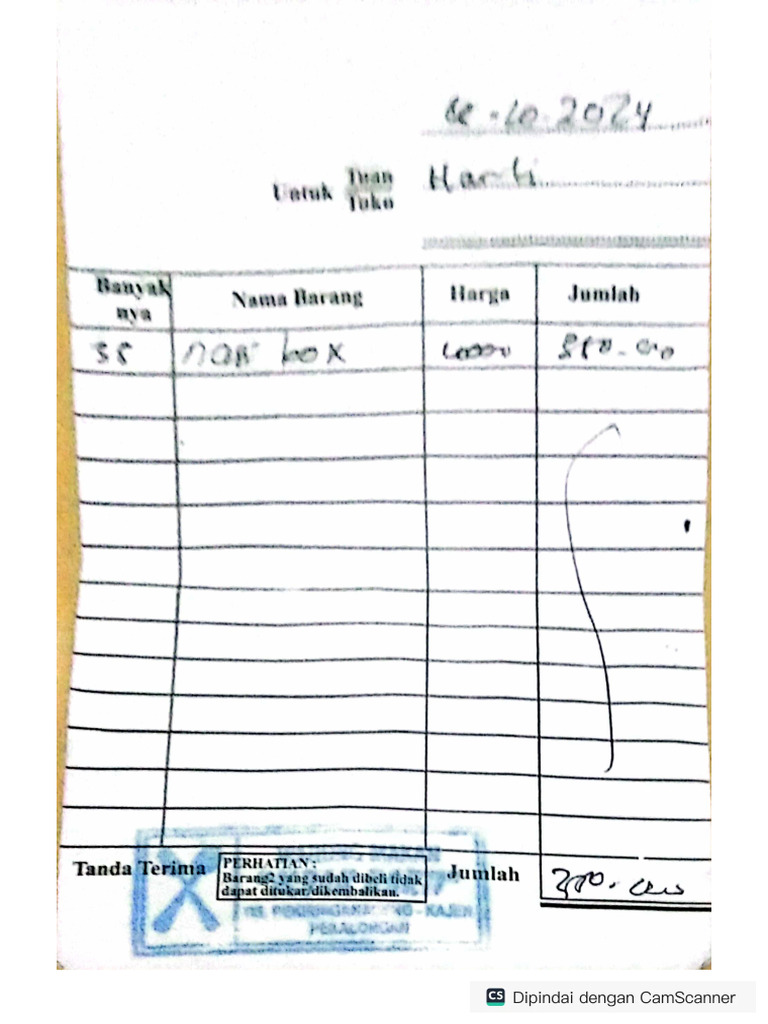 2024
Untuk Tuan Harti
Toko
Banyak nya Nama Barang Harga Jumlah
35 nasi box 10000
Tanda Terima PERHATIAN : Jumlah
Barang2 yang sudah dibeli tidak
dapat ditukar/dikembalikan.
WARUNG MAKAN
- KAJEN
PEKALONGAN
CS Dipindai dengan CamScanner